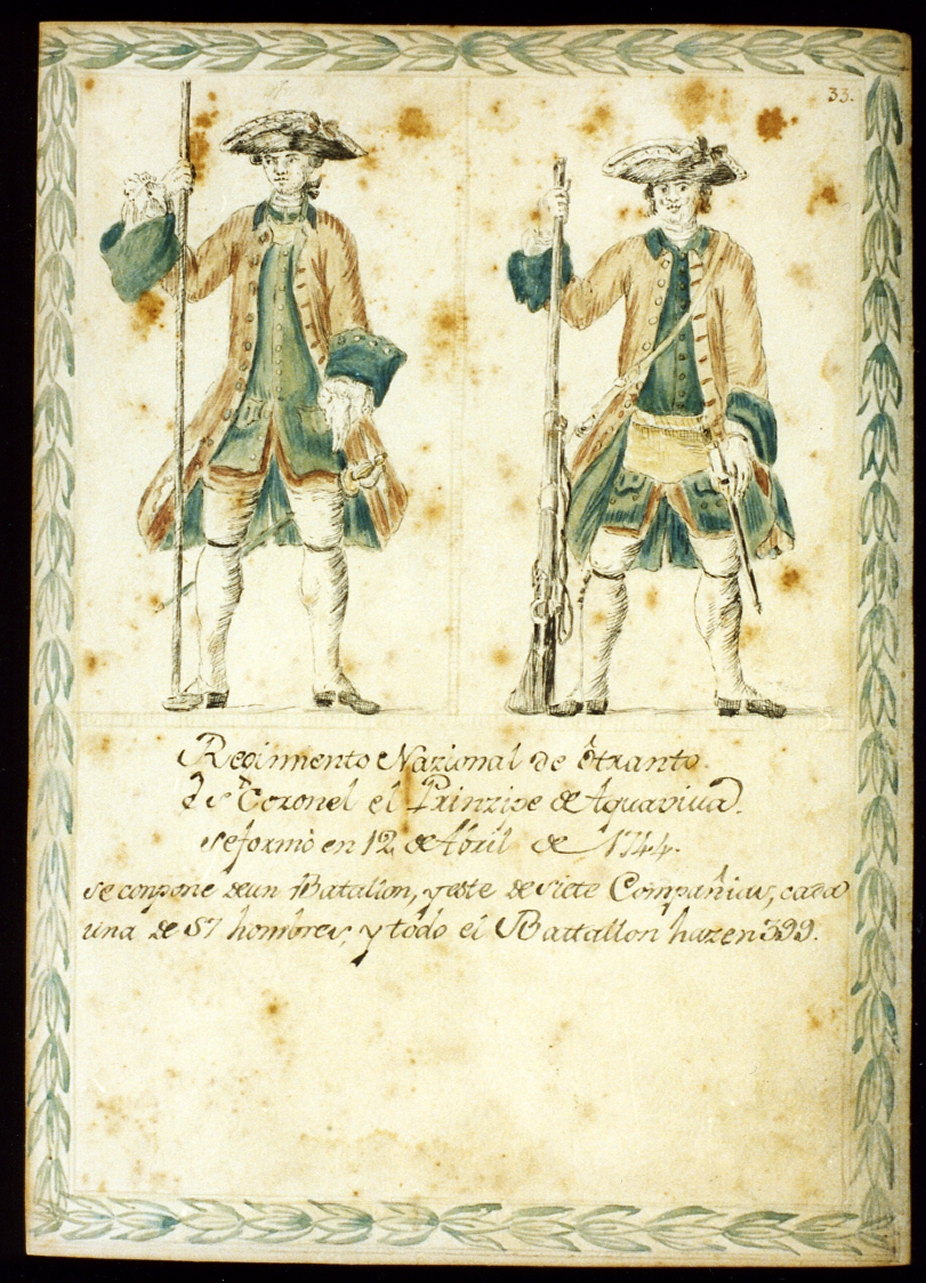 33.
Regimento Nazional de Otranto.
Coronel el Prinzipe de Aquaviva.
se formò en 12 de Abril de 1744.
se conpone de un Batalion, y este de siete Compañias, cada
una de 57 hombres, y todo el Battallon hazen 399.